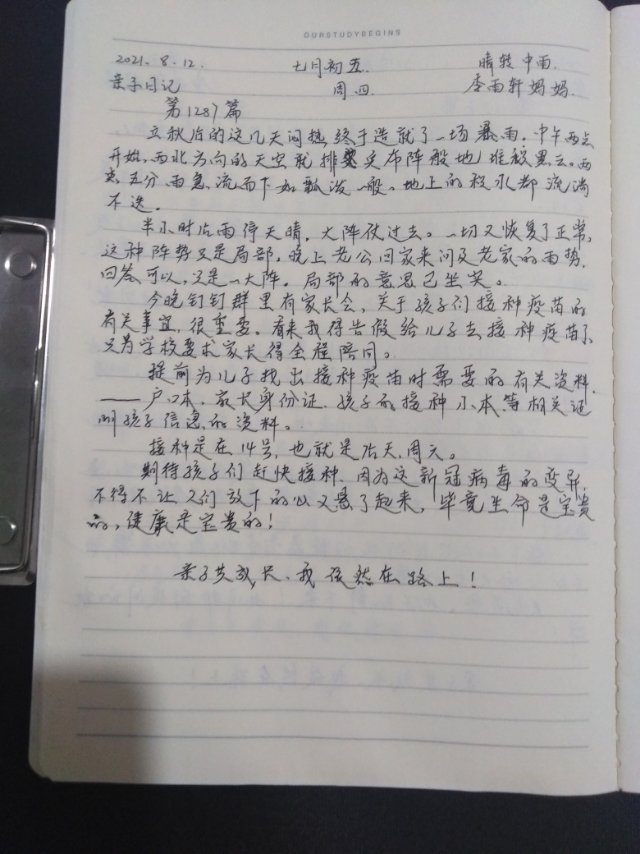 OURSTUDYBEGINS
2021.8.12. 七月初五. 晴转中雨
亲子日记 周四 李雨轩妈妈.
第1287篇
立秋后的这几天闷热,终于造就了一场暴雨。中午两点
开始,西北方向的天空就排兵布阵般地堆积黑云。两
点五分雨急流而下如瓢泼一般。地上的积水都流淌
不迭。
半小时后雨停天晴,大阵仗过去。一切又恢复了正常,
这种阵势又是局部,晚上老公回家来问及老家的雨势,
回答可以,又是一大阵。局部的意思已坐实。
今晚钉钉群里有家长会,关于孩子们接种疫苗的
有关事宜,很重要。看来我得告假给儿子去接种疫苗了,
只为学校要求家长得全程陪同。
提前为儿子找出接种疫苗时需要的有关资料,
——户口本、家长身份证、孩子的接种小本等相关证
明孩子信息的资料。
接种是在14号,也就是后天,周六。
期待孩子们赶快接种,因为这新冠病毒的变异,
不得不让人们放下的心又悬了起来,毕竟生命是宝贵
的,健康是宝贵的!
亲子共成长,我依然在路上!